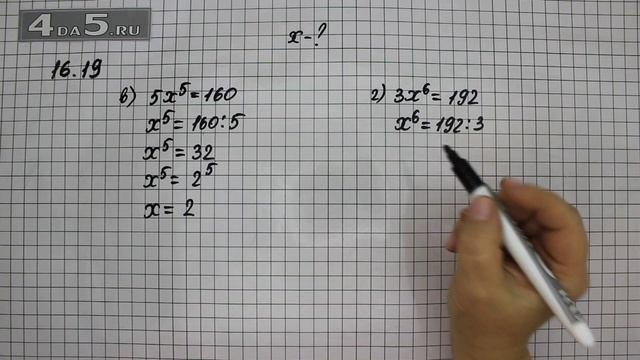 4DA5.RU
x-?
16.19
в) 5x⁵ = 160
x⁵ = 160:5
x⁵ = 32
x⁵ = 2⁵
x = 2
г) 3x⁶ = 192
x⁶ = 192:3